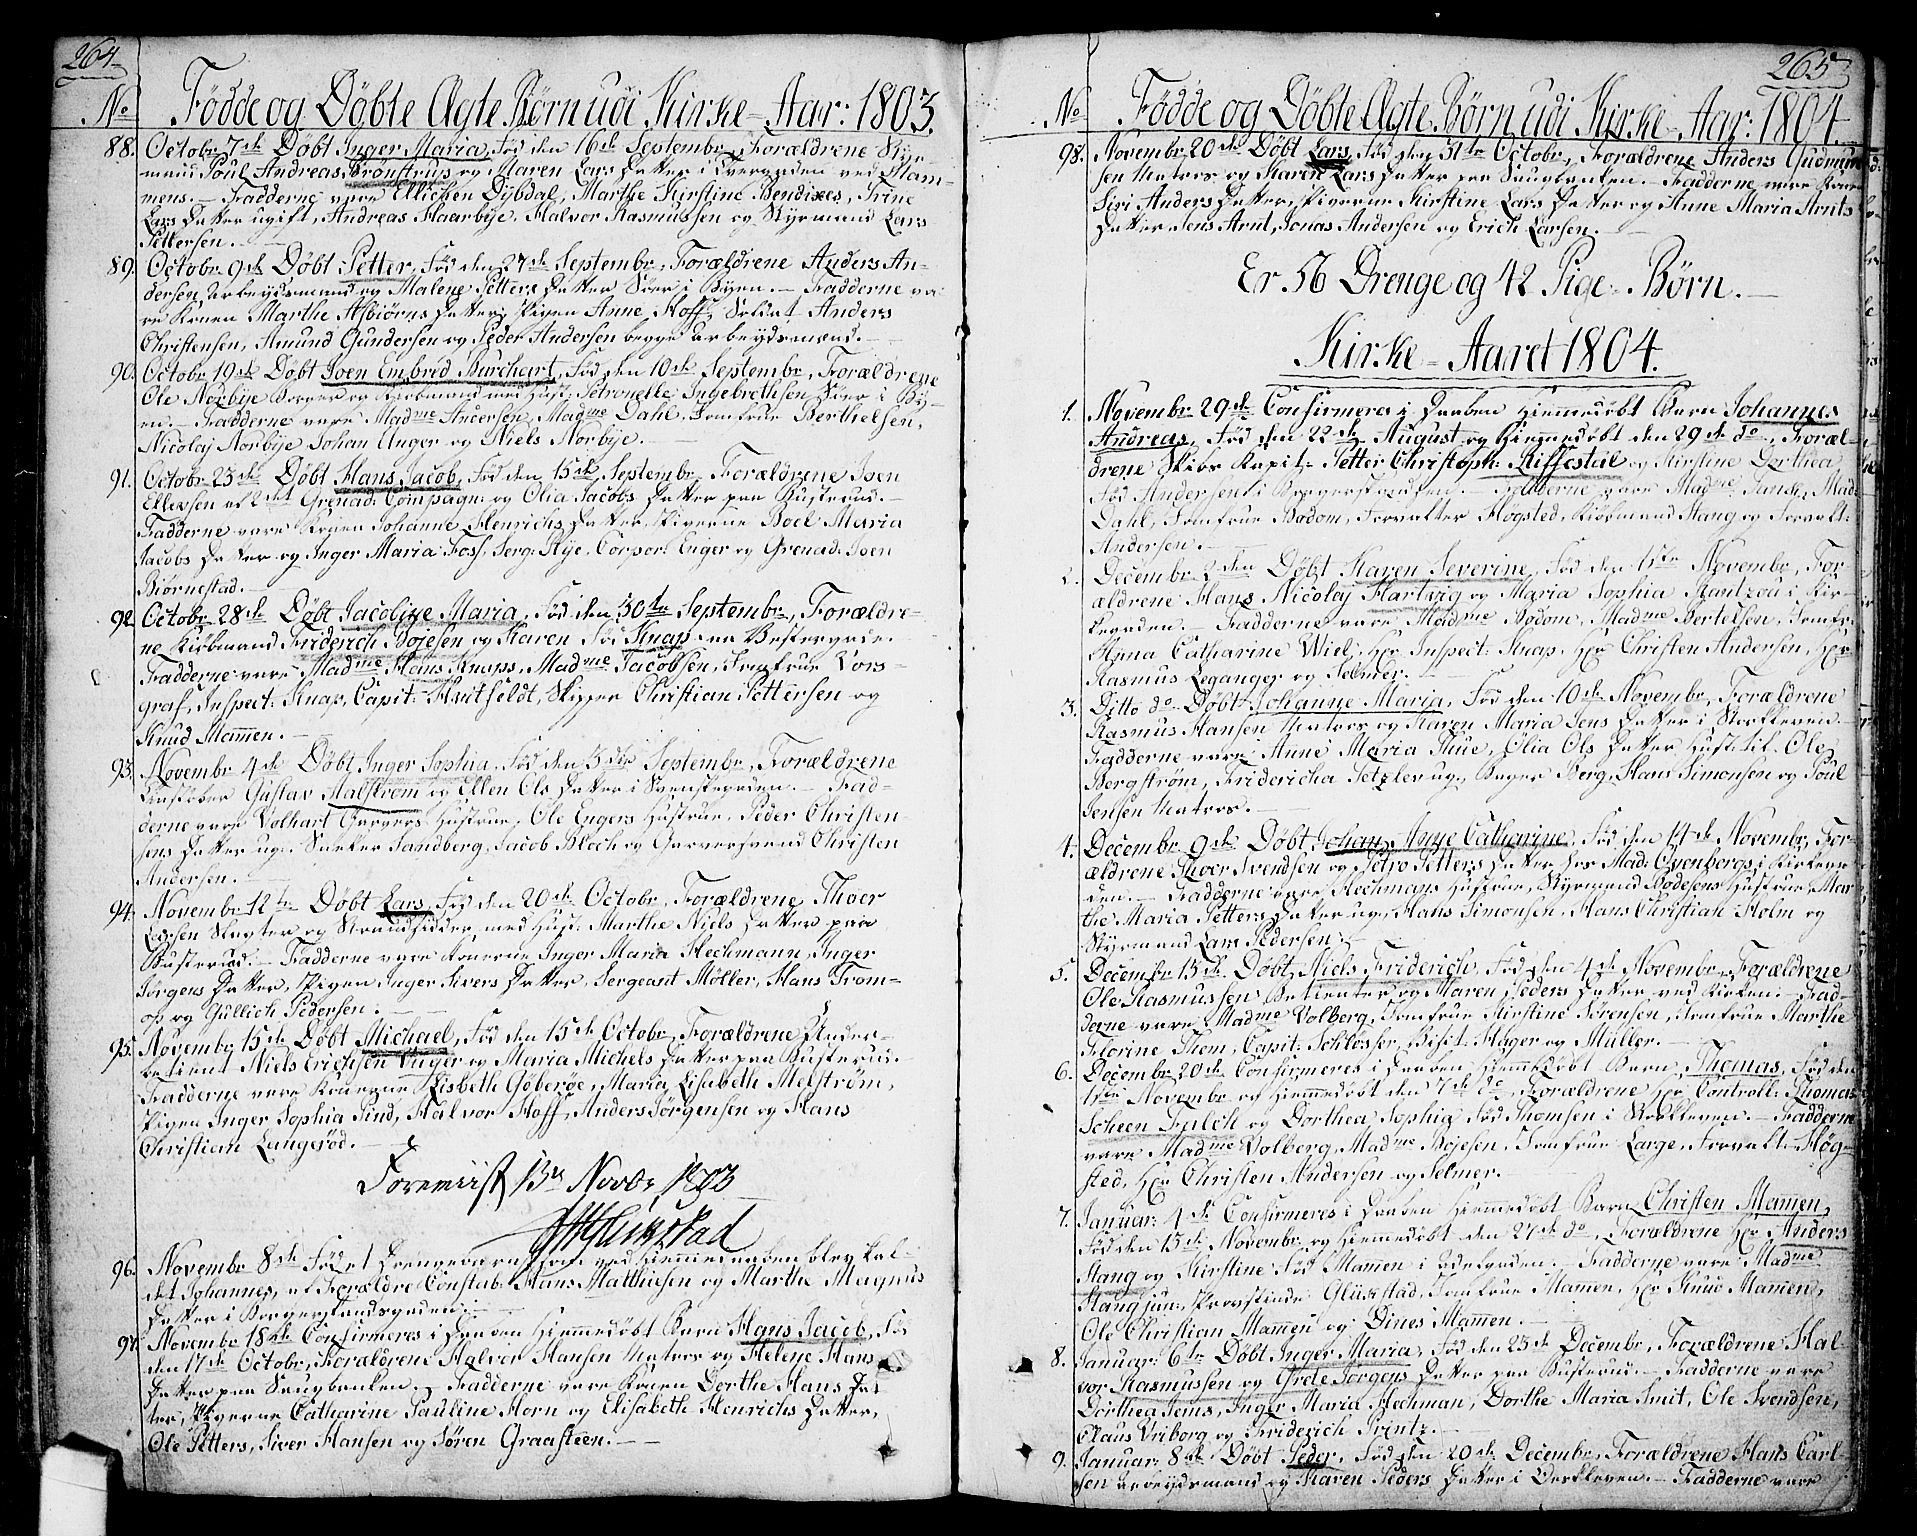 264.
No Fødde og Døbte Ægte Børn udi Kirke-Aar: 1803.
88. Octobr. 7de Døbt Inger Maria, Fød den 16de Septembr, Forældrene Styr-
mand Poul Andreas Brønstrup og Maren Lars Datter i Tvergaden ved Mam-
mens. – Fadderne vare Ellichen Dybdal, Marthe Kirstine Bendixes, Trine
Lars Datter ugift, Andreas Haarbye, Halvor Rasmussen og Styrmand Lars
Pettersen.
89. Octobr. 9de Døbt Petter, Fød den 27de Septembr, Forældrene Anders An-
dersen Arbeydsmand og Malene Petters Datter Søer i Byen. – Fadderne va-
re Konen Marthe Asbiørns Datter, Pigen Anne Hoff, Soldat Anders
Christensen, Amund Gundersen og Peder Andersen begge Arbeydsmænd.
90. Octobr. 19de Døbt Joen Embred Burchart, Fød den 10de Septembr, Forældrene
Ole Norbye Borger og Kiøbmand med Hust: Petronelle Ingebrethsen Søer i By-
en. – Fadderne vare Madme Andersen, Madme Dahl, Jomfrue Berthelsen,
Nicolaj Norbye, Johan Unger og Niels Norbye.
91. Octobr. 23de Døbt Hans Jacob, Fød den 15de Septembr, Forældrene Joen
Ellevsen af 2det Grenad: Compagn: og Olia Jacobs Datter paa Busterud. –
Fadderne vare Konen Johanne Henrichs Datter, Pigerne Boel Maria
Jacobs Datter og Inger Maria Foss, Serg: Rye, Corpor: Enger og Grenad: Joen
Biørnestad.
92. Octobr 28de Døbt Jacobine Maria, Fød den 30te Septembr, Forældre-
ne Kiøbmand Friderich Bojesen og Karen Fød Knap paa Vestergade.
Fadderne vare Madme Hans Knaps, Madme Jacobsen, Jomfrue Vors-
graf, Inspect: Knap, Capit: Huitfeldt, Skipper Christian Pettersen og
Knud Mamen.
93. Novembr 4de Døbt Inger Sophia, Fød den 3die Septembr, Forældrene
Gustav Halstrøm og Ellen Ols Datter i Svenskegaden. – Fad-
derne vare Volhart Garvers Hustrue, Ole Engers Hustrue, Peder Christen-
sens Datter ug:, Sandberg, Jacob Bloch og Garversvend Christen
Andersen.
94. Novembr 12te Døbt Lars, Fød den 20de Octobr, Forældrene Thoer
Larsen Slagter og Strandsidder med Hust: Marthe Niels Datter paa
Busterud. – Fadderne vare Konerne Inger Maria Heckmann, Inger
Jørgens Datter, Pigen Inger Sivers Datter, Sergeant Møller, Hans From-
op og Gullich Pedersen.
95. Novembr 15de Døbt Michael, Fød den 15de Octobr, Forældrene Under-
betient Niels Erichsen Unger og Maria Michels Datter paa Busterud.
Fadderne vare Konerne Lisbeth Gøberøe, Maria Lisabeth Melstrøm,
Pigen Inger Sophia Lind, Halvor Hoff, Anders Jørgensen og Hans
Christian Langesød.
Forevüst 13de Novbr 1803
96. Novembr 8de Fød et Drengebarn som ved Hiemmedaaben blev kal-
det Johannes, af Forældre Constab: Hans Mathiesen og Marthe Magnus
Datter i Borgerstandsgaden.
97. Novembr 18de Confirmeres i Daaben Hiemmedøbt Barn Hans Jacob, Fød
den 17de Octobr, Forældrene Halver Hansen Matros og Helene Hans
Datter paa Saugbanken. – Fadderne vare Konen Dorthe Hans Dat-
ter, Pigerne Catharine Pauline Horn og Elisabeth Henrichs Datter,
Ole Petters, Siver Hansen og Søren Graasteen.
265.
No Fødde og Døbte Ægte Børn udi Kirke-Aar: 1804.
98. Novembr 20de Døbt Lars, Fød den 31te Octobr, Forældrene Anders Gudmund-
sen Matros og Maren Lars Datter paa Saugbanken. – Fadderne vare Konen
Siri Anders Datter, Pigerne Kirstine Lars Datter og Anne Maria Arnts
Datter, Jens Arnt, Jonas Andersen og Erich Larsen.
Er 56 Drenge og 42 Pige-Børn.
Kirke-Aaret 1804.
1. Novembr 29de Confirmeres i Daaben Hiemmedøbt Barn Johannes
Andreas, Fød den 22de August og Hiemmedøbt den 29de do, Foræl-
drene Skibs Kapit: Petter Christoph: Riffestal og Kirstine Dorthea
Fød Andersen i Borgerstranden. – Fadderne vare Madme Tanke, Mad:
Dahl, Jomfrue Bodom, Forvalter Høgsted, Kiøbmand Stang og Forvalt:
Andersen.
2. Decembr. 2den Døbt Karen Severine, Fød den 1ste Novembr, For-
ældrene Hans Nicolaj Hartvig og Maria Sophia Rantzou i Kir-
kegaden. – Fadderne vare Madme Bodom, Madme Bertelsen, Jomfr:
Anna Catharine Wiel, Hr Inspect: Knap, Hr Christen Andersen, Hr
Rasmus Leganger og Selmer.
3. Ditto do Døbt Johanne Maria, Fød den 10de Novembr, Forældrene
Rasmus Hansen Matros og Karen Maria Jens Datter i Storkleven. –
Fadderne vare Anne Maria Thue, Olia Ols Datter Hust: til Ole
Bergstrøm, Fridericha Setzlev ug:, Bager Berg, Hans Simonsen og Poul
Jensen Matros.
4. Decembr 9de Døbt Johan: Inge Catharine, Fød den 14de Novembr, For-
ældrene Thoer Svendsen og Petro Petters Datter hos Mad: Openbergs i Kirkega-
den. – Fadderne vare Heckmans Hustrue, Styrmand Bodesens Hustrue, Mar-
the Maria Petters Datter ug:, Hans Simonsen, Hans Christian Holm og
Styrmand Lars Pedersen.
5. Decembr 15de Døbt Niels Friderich, Fød den 4de Novembr, Forældrene
Ole Rasmussen Betienter og Maren Peders Datter ved Kirken. – Fad-
derne vare Madme Volberg, Jomfrue Kirstine Sørensen, Jomfrue Marthe
Florine Thom, Capit: Schlosser, Bisit: Hager og Müller.
6. Decembr 20de Confirmeres i Daaben Hiemmedøbt Barn Thomas, Fød den
1ste Novembr og Hiemmedøbt den 7de do, Forældrene Hr Controll: Thomas
Scheen Falch og Dorthea Sophia Fød Thomsen i Vorkleven. – Fadderne
vare Madme Volberg, Madme Bojesen, Jomfrue Large, Forvalt: Høg-
sted, Hr Christen Andersen og Selmer.
7. Januar: 4de Confirmeres i Daaben Hiemmedøbt Barn Christen Mamen,
Fød den 15de Novembr og Hiemmedøbt den 27de do, Forældrene Hr Anders
Stang og Kirstine Fød Mamen i Adelgaden. – Fadderne vare Madme
Stang jun:, Provstinde Glückstad, Jomfrue Mamen, Hr Knud Mamen,
Ole Christian Mamen og Dines Mamen.
8. Januar: 6te Døbt Inger Maria, Fød den 23de Decembr, Forældrene Hal-
vor Rasmussen og Grete Jørgens Datter paa Busterud. – Fadderne vare
Dorthea Jems, Inger Maria Heckman, Dorthe Maria Smit, Ole Svendsen,
Claus Vriborg og Friderich Printz.
9. Januar: 8de Døbt Peder, Fød den 20de Decembr, Forældrene Hans Carl-
sen Arbeydsmand og Karen Peders Datter i Vorkleven. – Fadderne vare